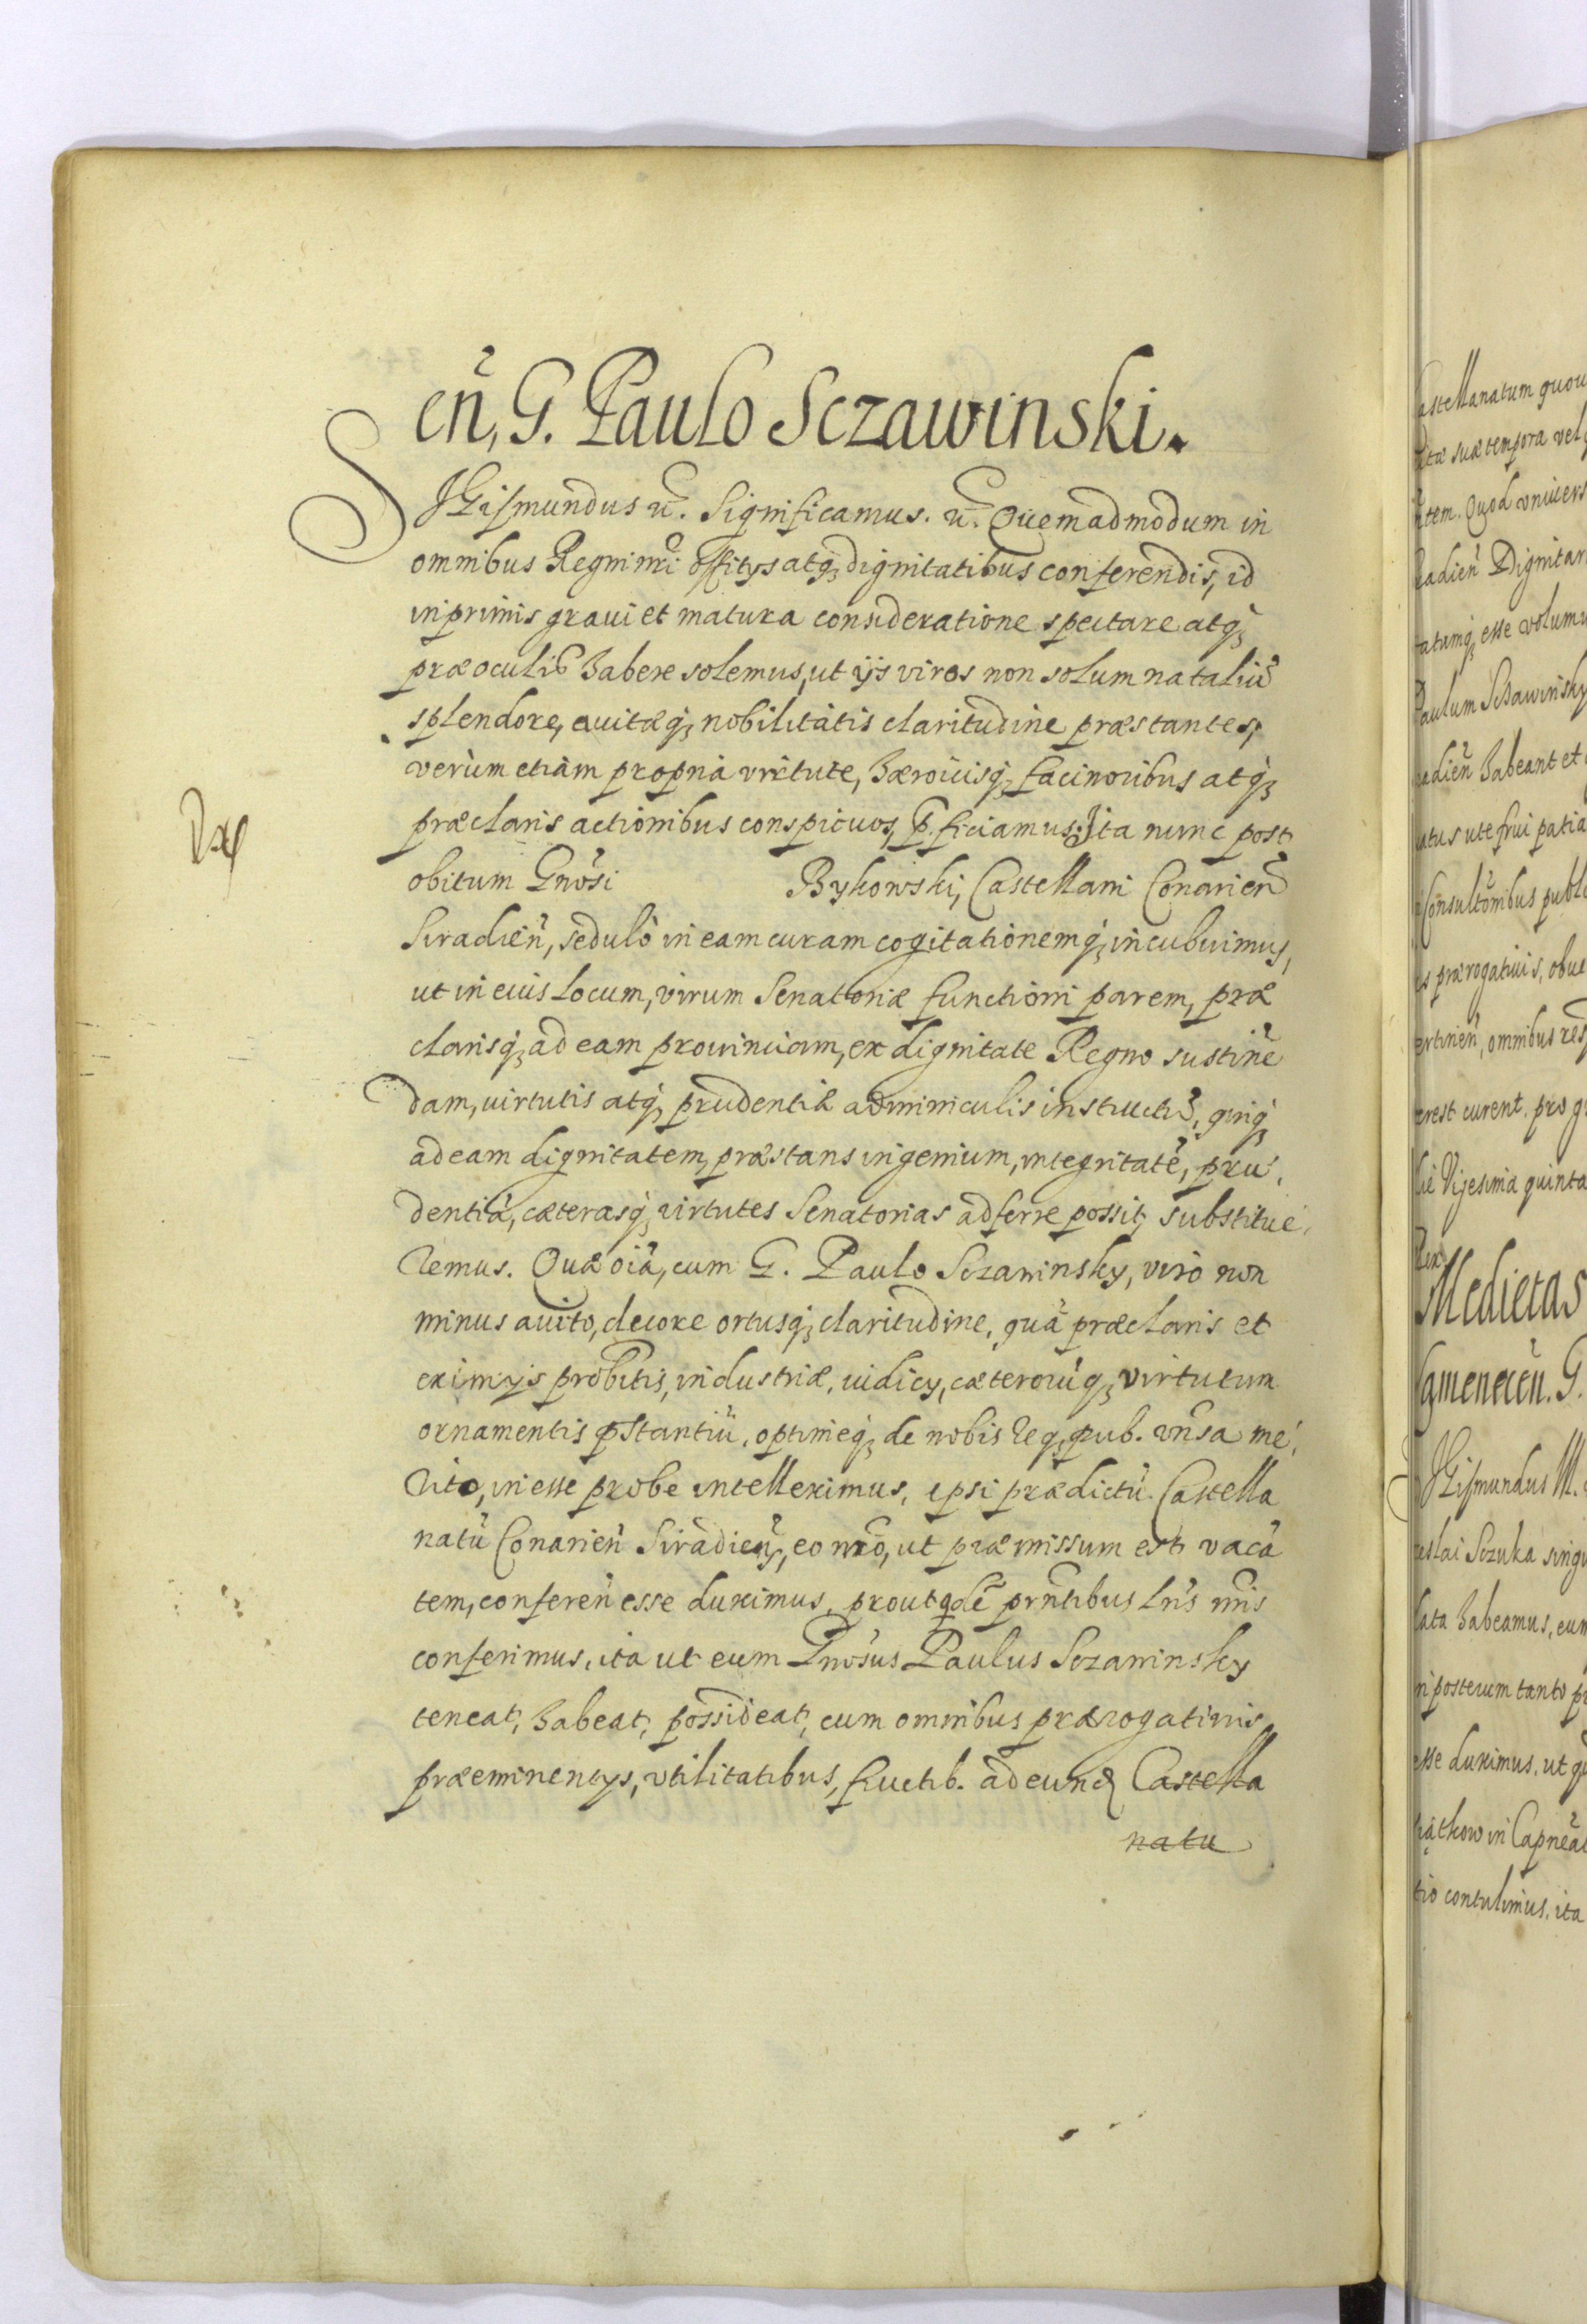 en̄, G. Paulo Sczawinski.
SIGismundus etc. Significamus. etc. Quemadmodum in
omnibus Regni nr̄i offitijs atq́ꝫ dignitatibus conferendis, id
inprimis graui et matura consideratione spectare atq́ꝫ
præ oculis habere solemus, ut ijs viros non solum nataliū
splendore, auitæq́ꝫ nobilitatis claritudine præstantes,
verùm etiàm propria virtute, hæroicisq́ꝫ facinoribus atq́ꝫ
præclaris actionibus conspicuos, p̄ficiamus: Ita nunc post
obitum Gn̄osi Bykowski, Castellani Conarien̄
Siradien̄, sedulò in eam curam cogitationemq́ꝫ incubuimus,
ut in eius locum, virum Senatoriæ functioni parem, præ
clarisq́ꝫ ad eam prouinciam, ex dignitate Regno sustinē
dam, uirtutis atq́ꝫ prudentiæ adminiculis instructū, quiq́ꝫ
ad eam dignitatem, præstans ingenium, integritatē, pru,
dentiā, cæterasq́ꝫ virtutes Senatorias adferre possit, substitue,
remus. Quæ oīa, cum G. Paulo Sczawinsky, viro non
minus auito, decore ortusq́ꝫ claritudine, quā præclaris et
eximijs probitis, industriæ, iudicij, cæterorūq́ꝫ virtutum
ornamentis p̄stantiū, optimeq́ꝫ de nobis Reqꝫ pub. vn̄sa me,
rito, inesse probe intelleximus, ipsi prædictū Castella
natū Conarien̄ Siradien̄, eo mō, ut præmissum est vacā
tem, conferen̄ esse duximus, prout qdē prn̄tibus lr̄is nr̄is
conferimus, ita ut eum Gn̄osus Paulus Sczawinsky
teneat, habeat, possideat, cum omnibus prærogatiuis
præeminentijs, vtilitatibus, fructib. ad eund Castella
natu
astellanatum quou
itæ suæ tempora vel
tem. Quod vniuers
radien̄ Dignitar
tatumq́ꝫ esse volumu
Paulum Sczawinsky
radien̄ habeant et
atus ute frui patia
Consultōnibus publ
s prærogatiuis, obue
ertinen̄, omnibus res
erest curent, pro g
ie Vigesima quinta
Rex
Medietas
Camenecen̄. G.
SIGismundus III.
eslai Sczuka singu
lata habeamus, eum
in posterum tanto p
esse duximus, ut q
iątkow in Capnēa
tio contulimus, ita